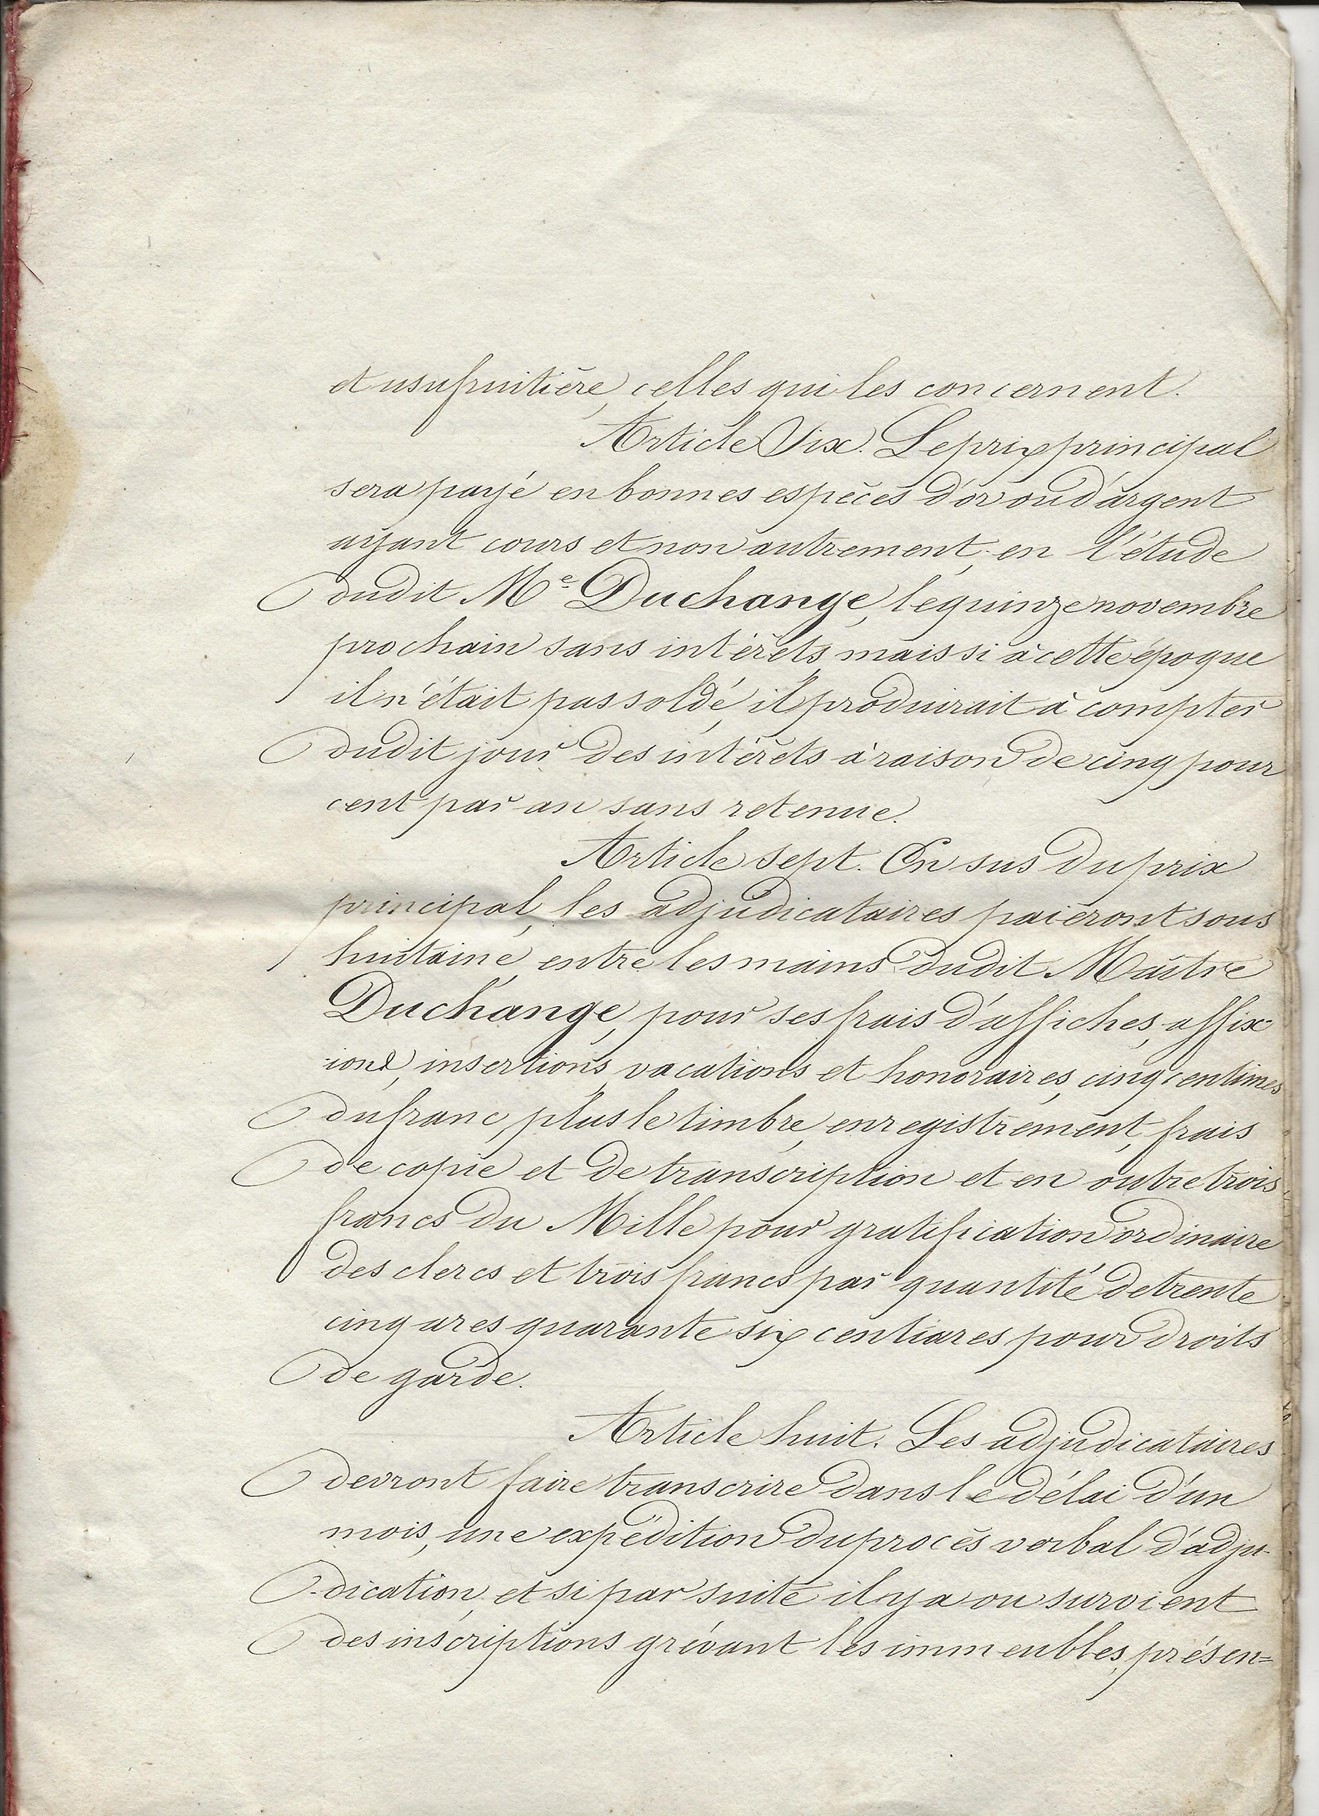 et usufruitière, celles qui les concernent.
Article Six. Le prix principal
sera payé en bonnes espèces d'or ou d'argent
ayant cours et non autrement, en l'étude
dudit Me Duchange, le quinze novembre
prochain sans intérêts, mais si à cette époque
il n'était pas soldé, il produirait à compter
dudit jour des intérêts à raison de cinq pour
cent par an sans retenue.
Article sept. En sus du prix
principal, les adjudicataires paieront sous
huitaine, entre les mains dudit Maître
Duchange, pour ses frais d'affiches, affix
ions, insertions, vacations et honoraires, cinq centimes
du franc, plus le timbre, enregistrement, frais
de copie et de transcription et en outre trois
francs du Mille pour gratification ordinaire
des clercs et trois francs par quantité de trente
cinq ares quarante six centiares pour droits
de garde.
Article huit. Les adjudicataires
devront faire transcrire dans le délai d'un
mois, une expédition du procès verbal d'adju-
-dication, et si par suite il y a ou survient
des inscriptions grévant les immeubles, présen=